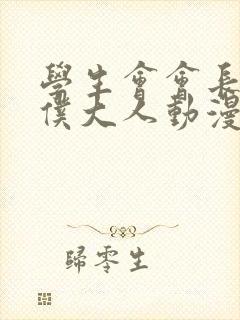 學生會會長
僕大人動漫
歸零生